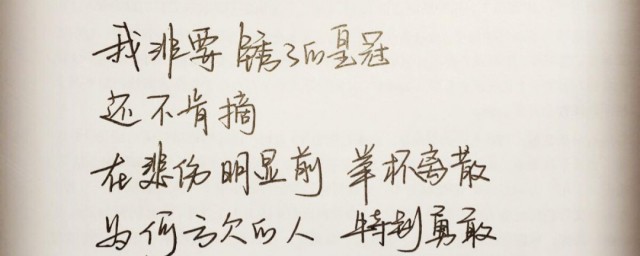 我非要 锈了的皇冠
还不肯摘
在悲伤明显前 举杯离散
为何亏欠的人 特别勇敢